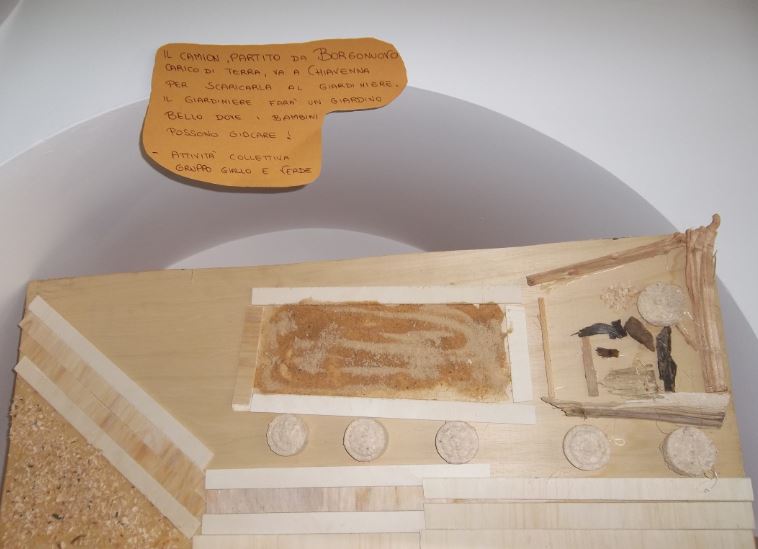 IL CAMION, PARTITO DA BORGONUOVO
CARICO DI TERRA, VA A CHIAVENNA
PER SCARICARLA AL GIARDINIERE.
IL GIARDINIERE FARA' UN GIARDINO
BELLO DOVE I BAMBINI
POSSONO GIOCARE!
- ATTIVITA' COLLETTIVA
GRUPPO GIALLO E VERDE